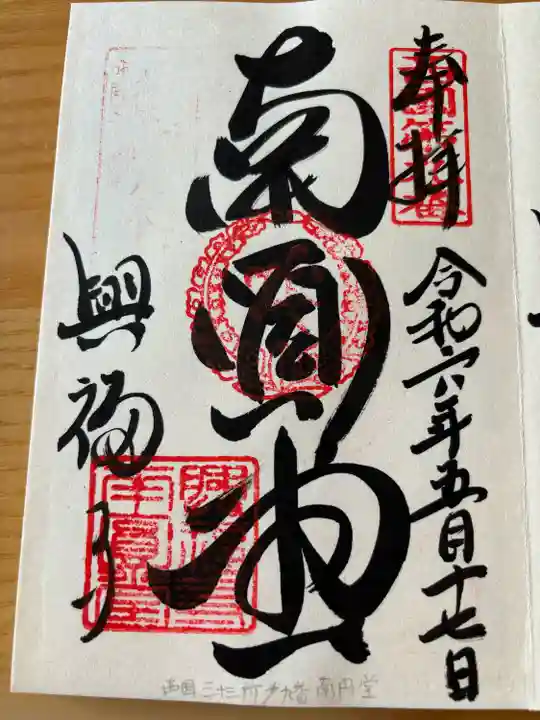 奉拝
令和六年五月十七日
南圓堂
興福寺
西国三十三所第九番 南円堂